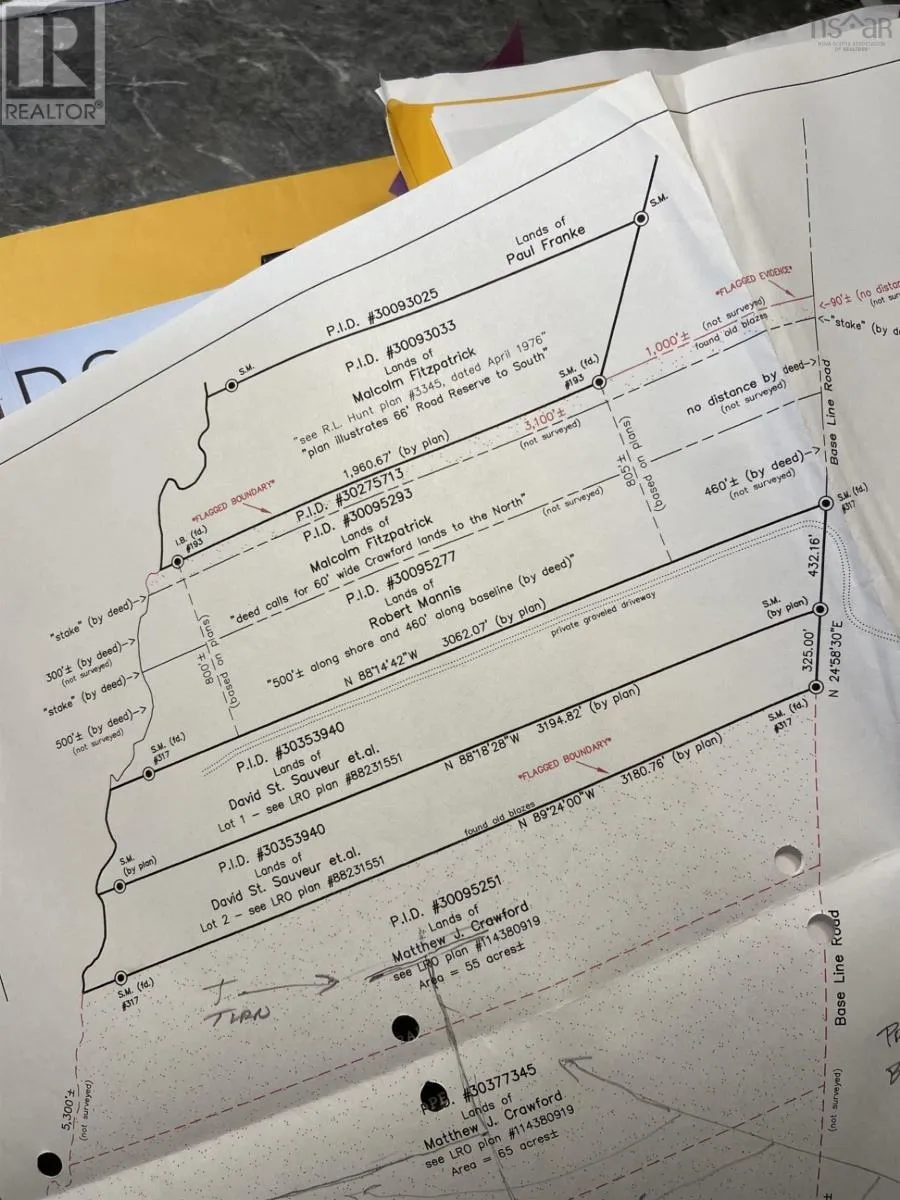 REALTOR®
nsaar
NOVA SCOTIA ASSOCIATION
OF REALTORS®
Lands of
Paul Franke
S.M.
P.I.D. #30093025
S.M.
P.I.D. #30093033
Lands of
Malcolm Fitzpatrick
"see R.L. Hunt plan #3345, dated April 1976"
"plan illustrates 66' Road Reserve to South"
*FLAGGED EVIDENCE*
1,000'±
(not surveyed)
found old blazes
90'± (no
(not
"stake" (by
S.M. (fd.)
#193
1,960.67' (by plan)
3,100'±
(not surveyed)
no distance by deed
(not surveyed)
Base Line Road
805'±
(based on plans)
*FLAGGED BOUNDARY*
P.I.D. #30275713
P.I.D. #30095293
Lands of
Malcolm Fitzpatrick
"deed calls for 60' wide Crawford lands to the North"
(not surveyed)
460'± (by deed)
(not surveyed)
I.B. (fd.)
#193
S.M. (fd.)
#317
"stake" (by deed)
300'± (by deed)
(not surveyed)
"stake" (by deed)
500'± (by deed)
(not surveyed)
800'±
(based on plans)
P.I.D. #30095277
Lands of
Robert Mannis
"500'± along shore and 460' along baseline (by deed)"
N 88°14'42"W 3062.07' (by plan)
private graveled driveway
432.16'
S.M.
(by plan)
325.00'
N 24°58'30"E
S.M. (fd.)
#317
P.I.D. #30353940
Lands of
David St. Sauveur et.al.
Lot 1 - see LRO plan #88231551
N 88°18'28"W 3194.82' (by plan)
S.M. (fd.)
#317
*FLAGGED BOUNDARY*
S.M.
(by plan)
P.I.D. #30353940
Lands of
David St. Sauveur et.al.
Lot 2 - see LRO plan #88231551
found old blazes
N 89°24'00"W 3180.76' (by plan)
S.M. (fd.)
#317
P.I.D. #30095251
Lands of
Matthew J. Crawford
see LRO plan #114380919
Area = 55 acres±
Base Line Road
5,300'±
(not surveyed)
#30377345
Lands of
Matthew J. Crawford
see LRO plan #114380919
Area = 65 acres±
(not surveyed)